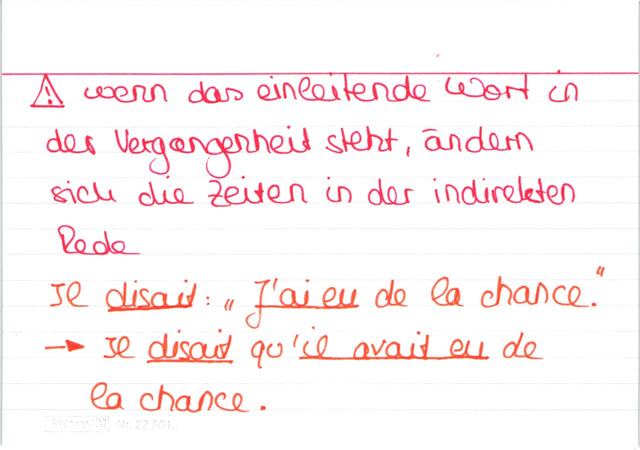 ⚠ wenn das einleitende Wort in
der Vergangenheit steht, ändern
sich die Zeiten in der indirekten
Rede
Il disait: „J'ai eu de la chance."
→ Il disait qu'il avait eu de
la chance.
Nr. 22 501